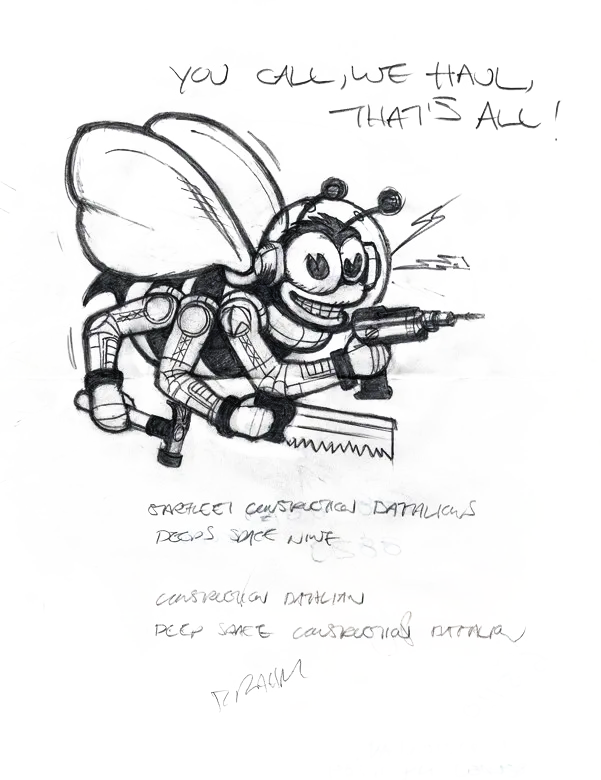 YOU CALL, WE HAUL,
THAT'S ALL!
STARFLEET CONSTRUCTION BATTALIONS
DEEPS SPACE NINE
CONSTRUCTION BATALIAN
DEEP SPACE CONSTRUCTION BATTALION